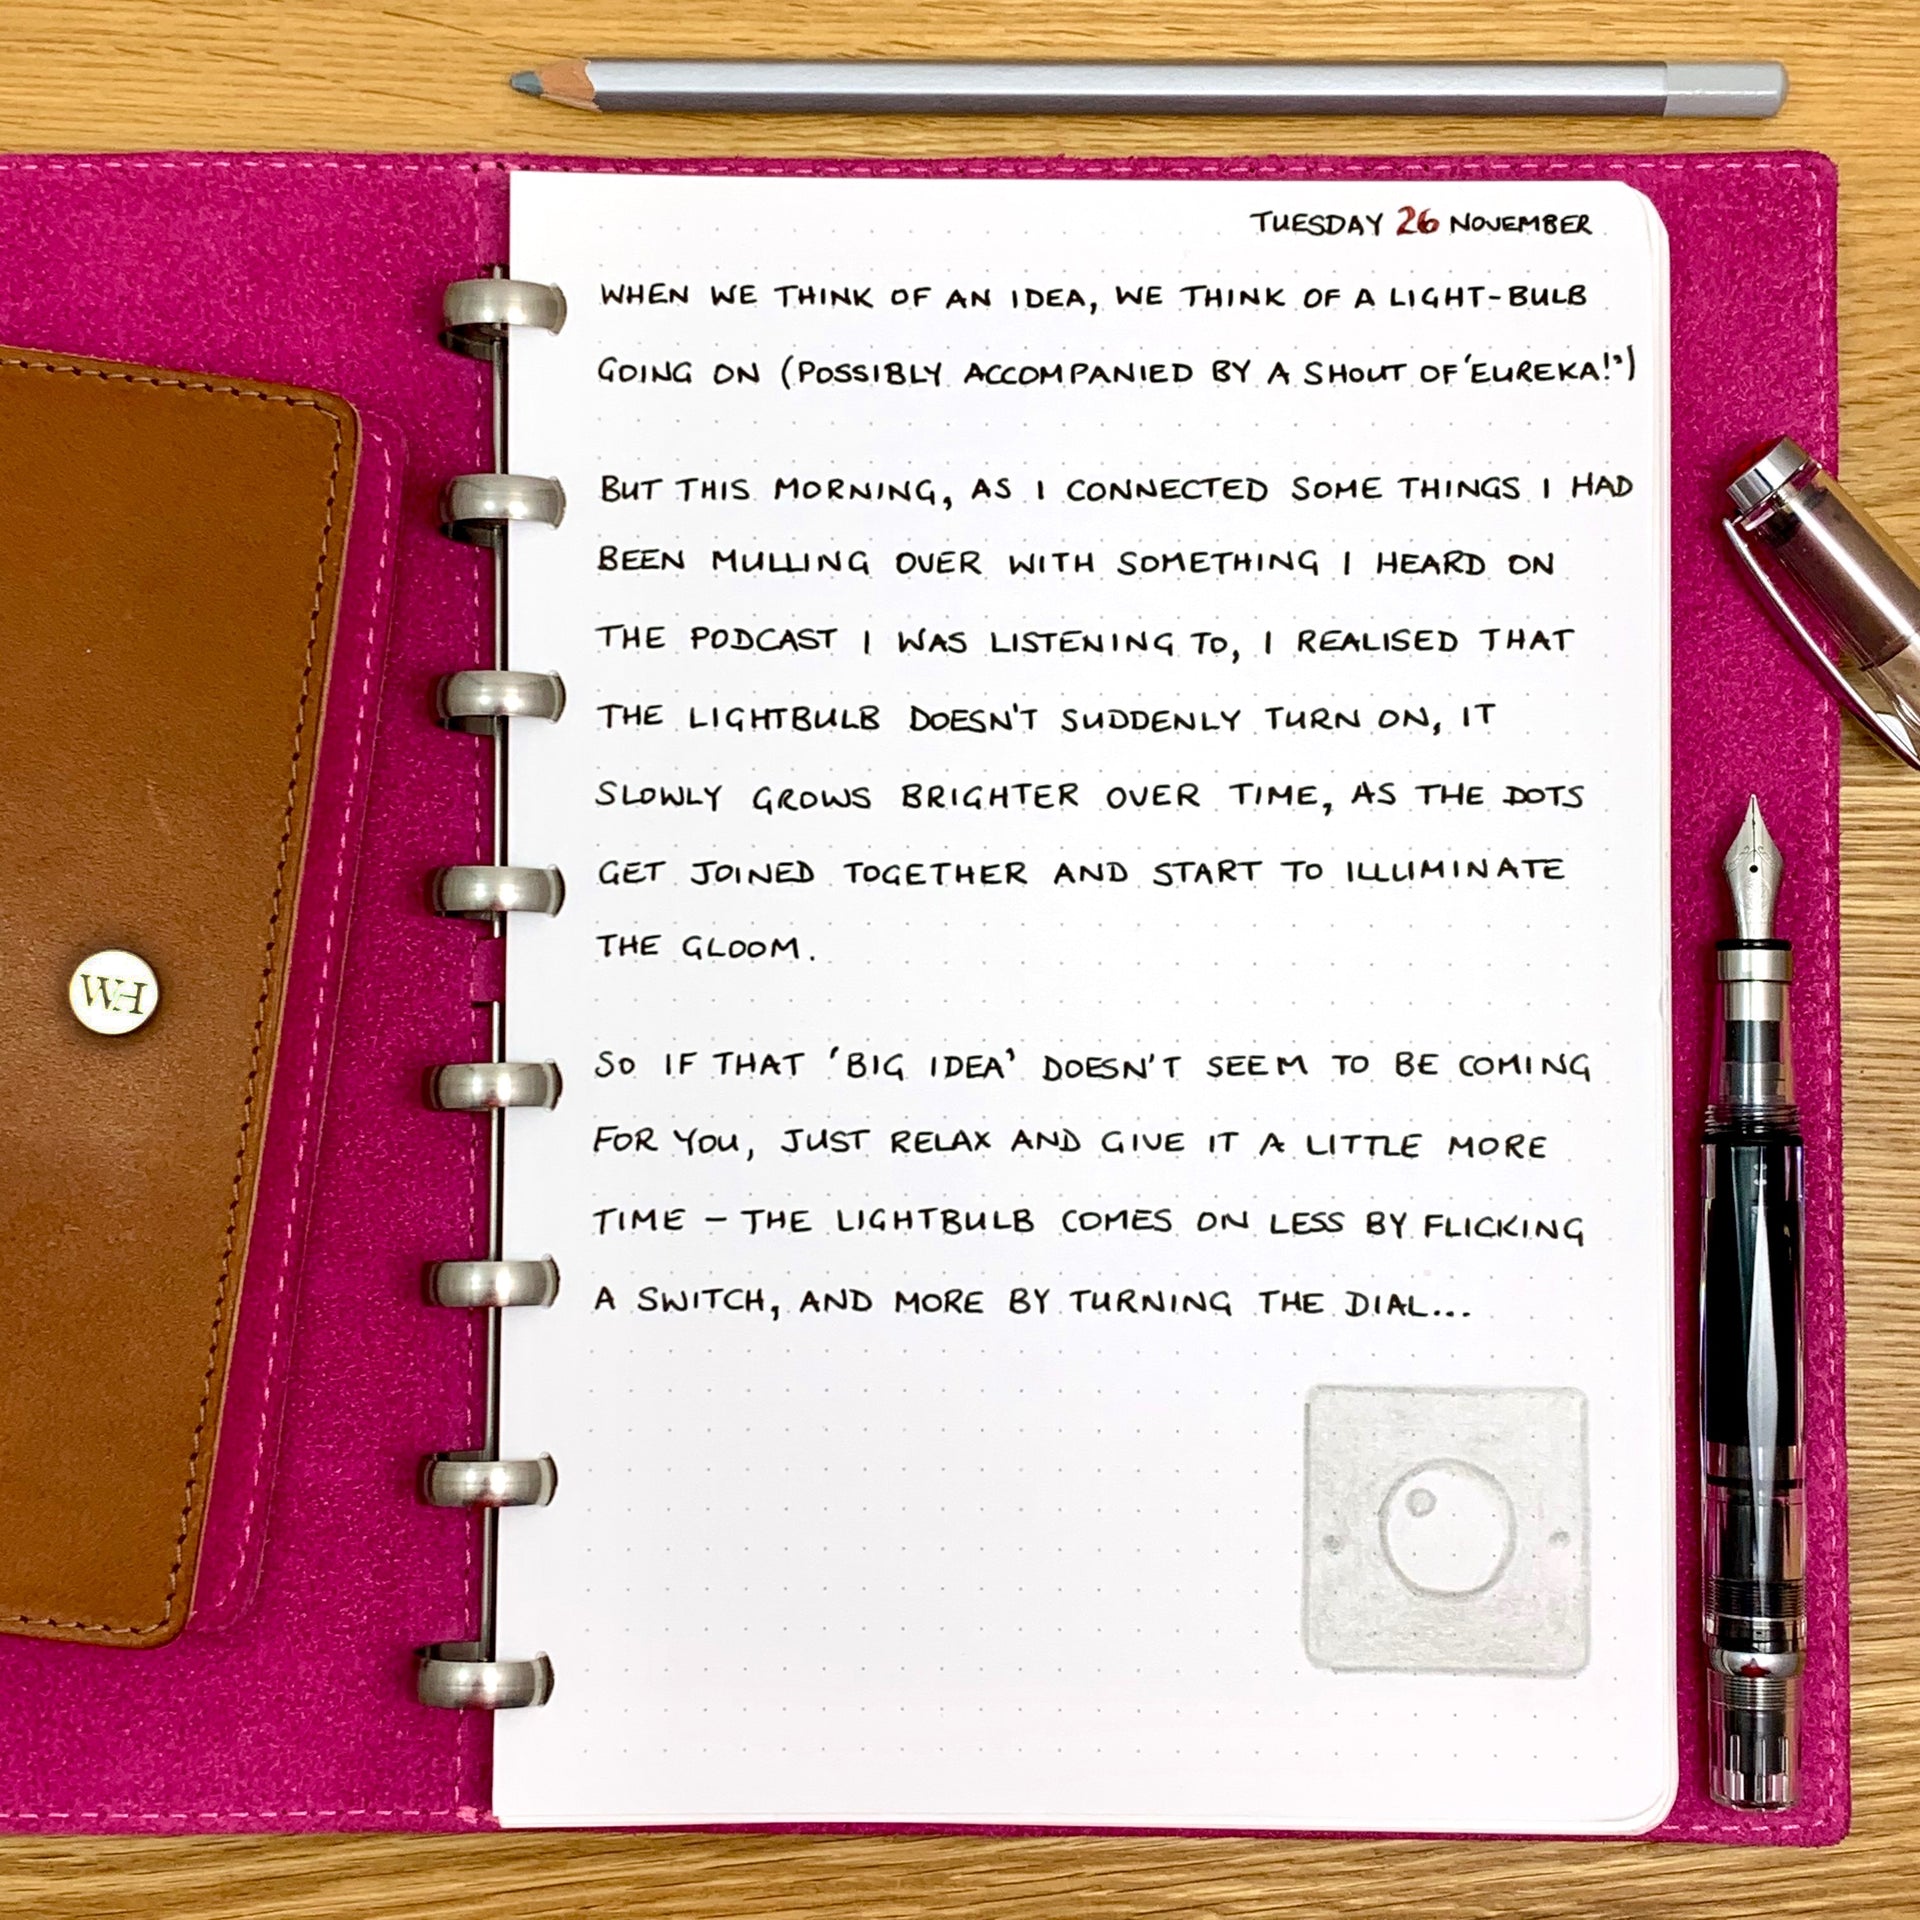 TUESDAY 26 NOVEMBER
WHEN WE THINK OF AN IDEA, WE THINK OF A LIGHT-BULB
GOING ON (POSSIBLY ACCOMPANIED BY A SHOUT OF 'EUREKA!')
BUT THIS MORNING, AS I CONNECTED SOME THINGS I HAD
BEEN MULLING OVER WITH SOMETHING I HEARD ON
THE PODCAST I WAS LISTENING TO, I REALISED THAT
THE LIGHTBULB DOESN'T SUDDENLY TURN ON, IT
SLOWLY GROWS BRIGHTER OVER TIME, AS THE DOTS
GET JOINED TOGETHER AND START TO ILLUMINATE
THE GLOOM.
SO IF THAT 'BIG IDEA' DOESN'T SEEM TO BE COMING
FOR YOU, JUST RELAX AND GIVE IT A LITTLE MORE
TIME – THE LIGHTBULB COMES ON LESS BY FLICKING
A SWITCH, AND MORE BY TURNING THE DIAL...
WH